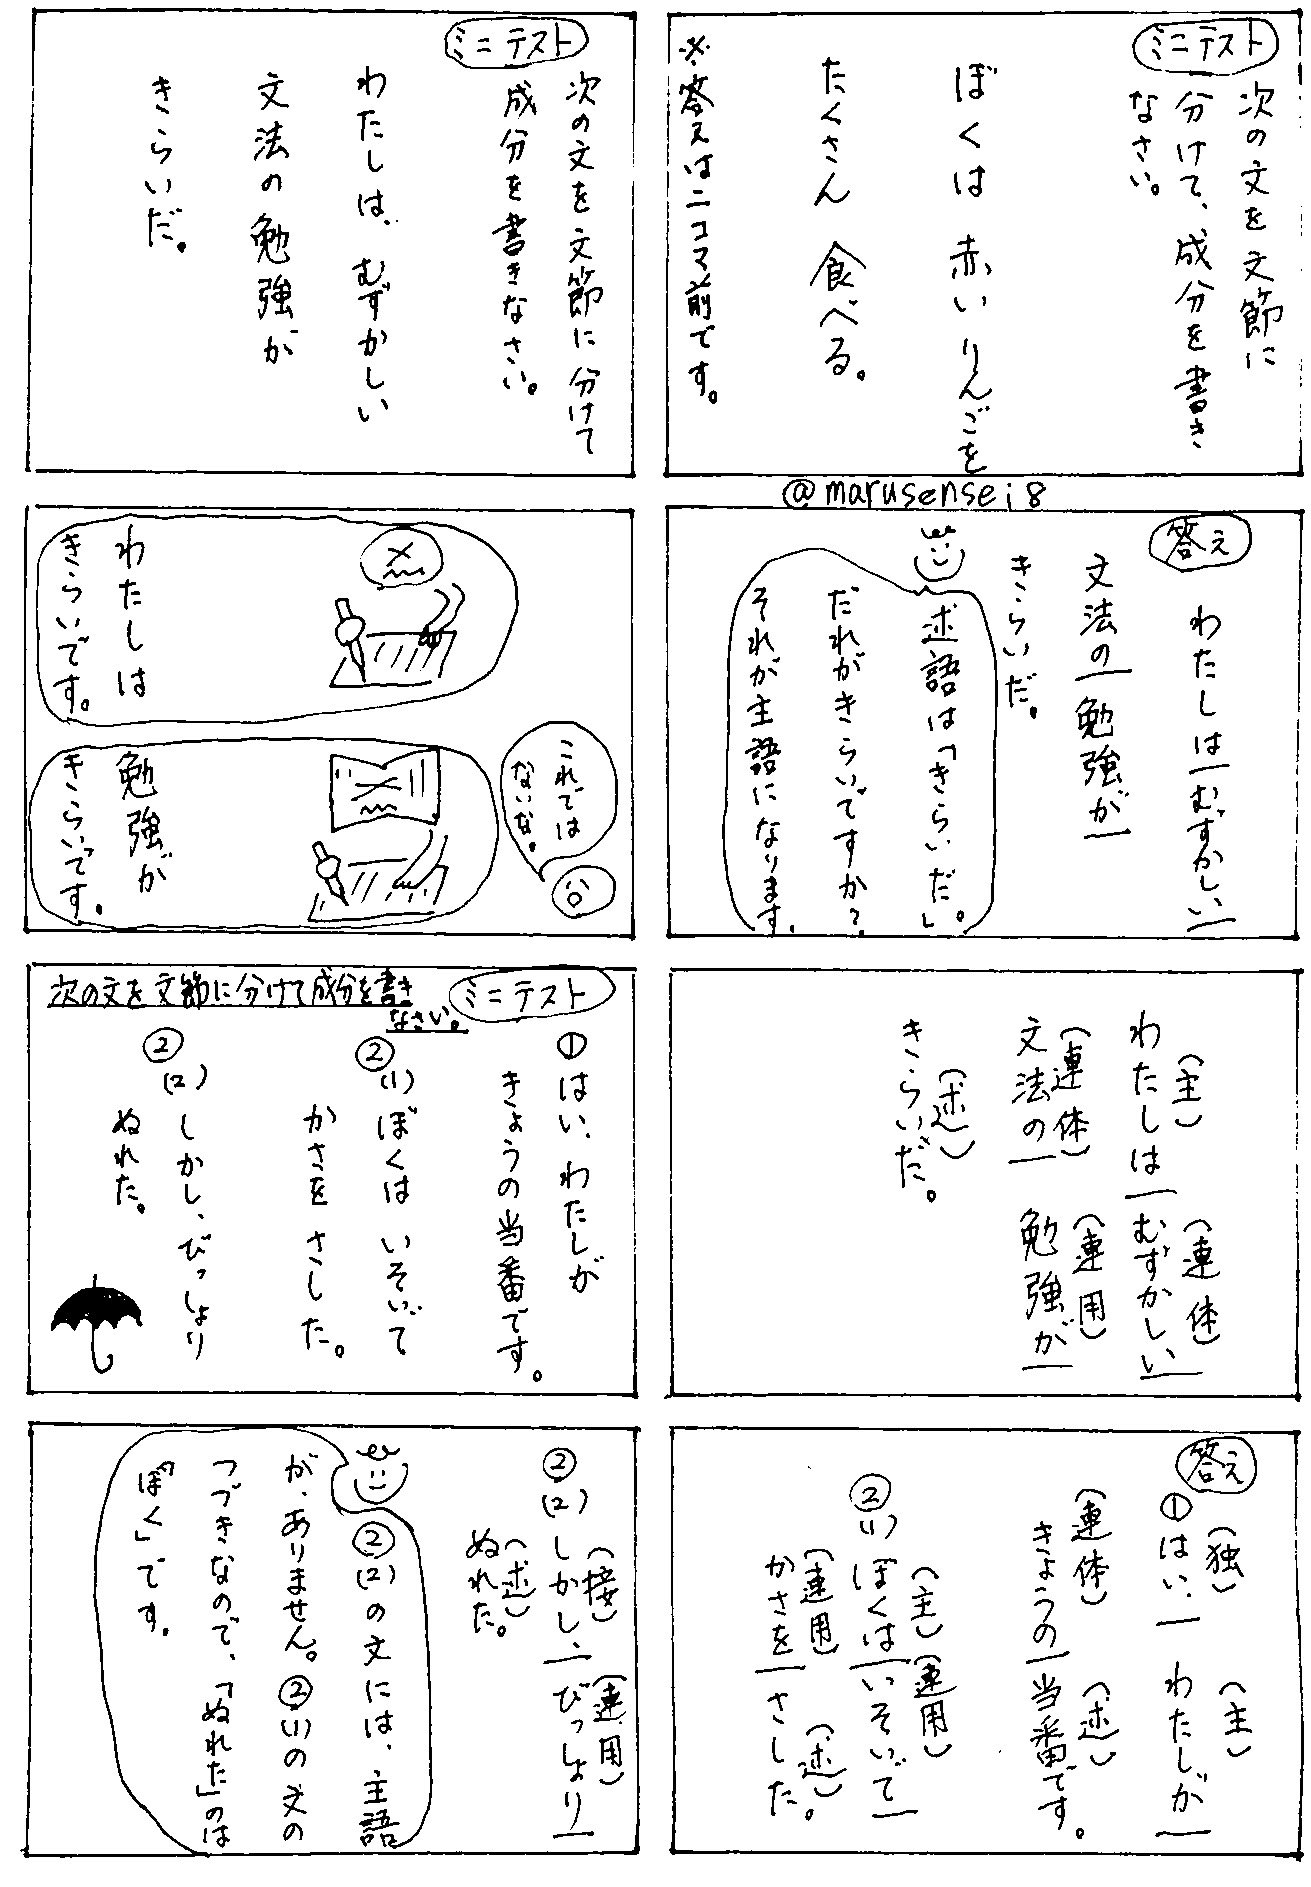 ミニテスト
次の文を文節に
分けて、成分を書き
なさい。
ぼくは 赤い りんごを
たくさん 食べる。
※答えは二コマ前です。
ミニテスト
次の文を文節に分けて
成分を書きなさい。
わたしは、むずかしい
文法の勉強が
きらいだ。
@marusensei8
答え
わたしは|むずかしい|
文法の|勉強が|
きらいだ。
述語は「きらいだ」。
だれがきらいですか?
それが主語になります。
わたしは
きらいです。
これでは
ないな。
勉強が
きらいです。
(主) (連体)
わたしは|むずかしい|
(連体) (連用)
文法の|勉強が|
(述)
きらいだ。
ミニテスト
次の文を文節に分けて成分を書き
なさい。
①はい、わたしが
きょうの当番です。
②(1)ぼくは いそいで
かさを さした。
②(2)しかし、びっしょり
ぬれた。
答え
(独) (主)
①はい、|わたしが|
(連体) (述)
きょうの|当番です。
(主)(連用)
②(1)ぼくは|いそいで|
(連用) (述)
かさを|さした。
(接) (連用)
②(2)しかし、|びっしょり|
(述)
ぬれた。
②(2)の文には、主語
が、ありません。②(1)の文の
つづきなので、「ぬれた」のは
「ぼく」です。